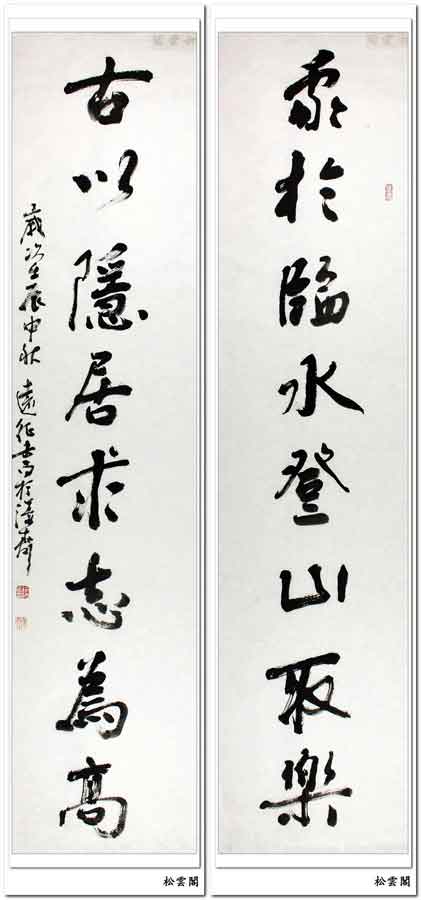 於臨水登山取樂
古以隱居求志為高
歲次壬辰中秋 遠征書於齋
松雲閣
松雲閣